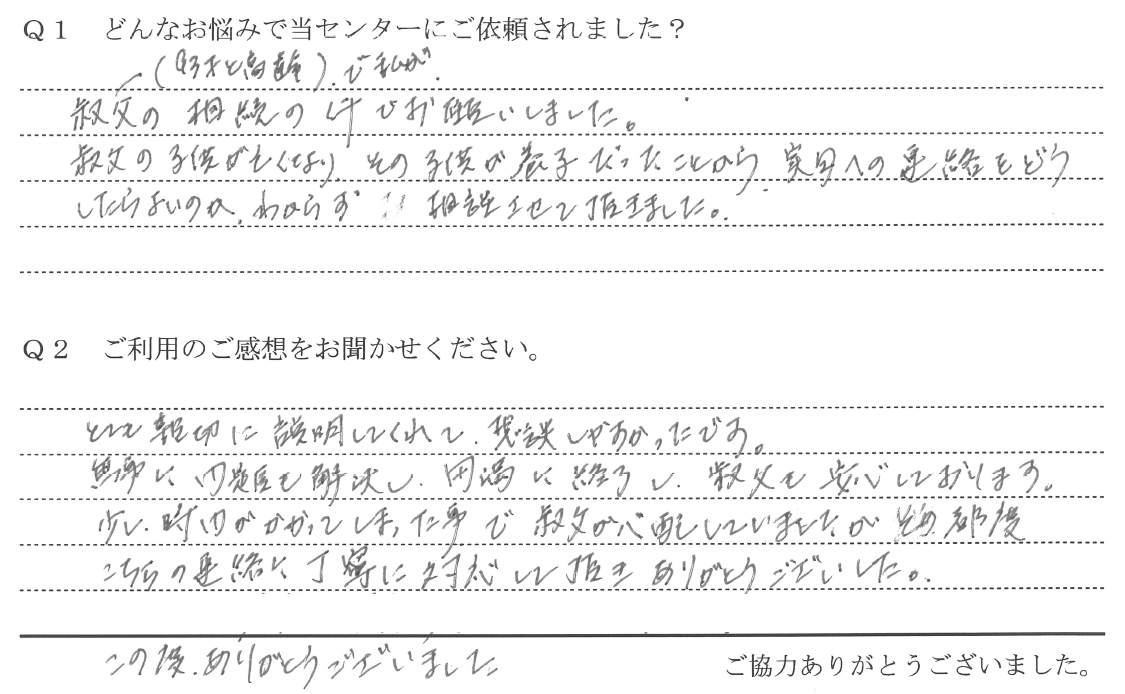 Q1 どんなお悩みで当センターにご依頼されました?
高齢)、で私が
叔父の 相続の件でお願いしました。
叔父の子供が亡くなり、その子供が養子だったことから、実母への連絡をどう
したらよいのか、わからず 相談させて頂きました。
Q2 ご利用のご感想をお聞かせください。
とても親切に説明してくれて、相談しやすかったです。
無事に問題も解決し、円満に終了し、叔父も安心しております。
少し時間がかかってしまった事で叔父が心配していましたが その都度
こちらの連絡に丁寧に対応して頂き ありがとうございました。
この度、ありがとうございました
ご協力ありがとうございました。